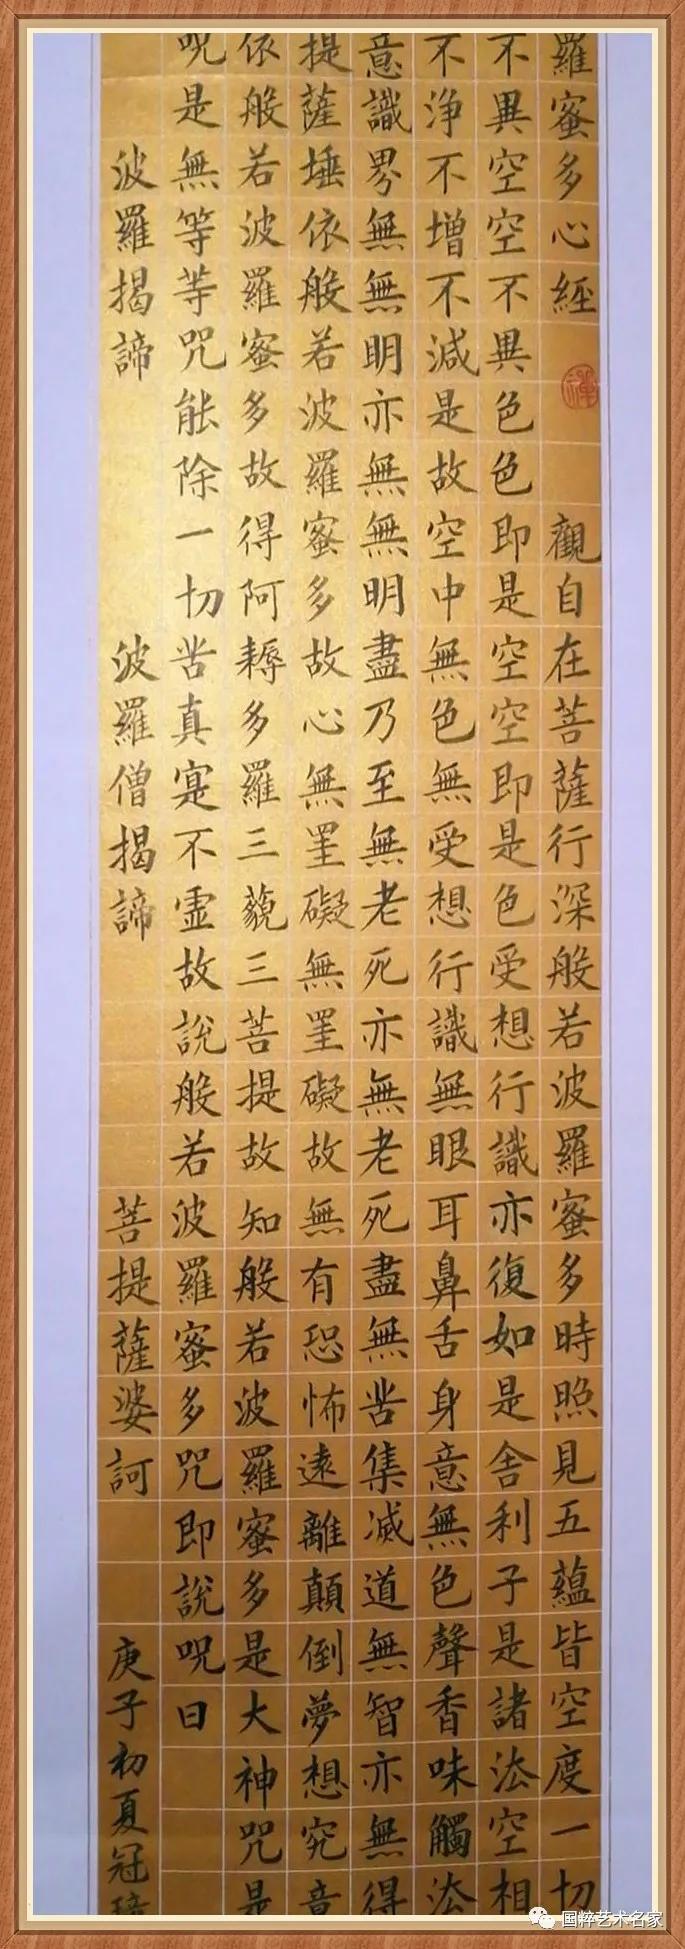 羅蜜多心經 觀自在菩薩行深般若波羅蜜多時照見五蘊皆空度一切
不異空空不異色色即是空空即是色受想行識亦復如是舍利子是諸法空相
不淨不增不減是故空中無色無受想行識無眼耳鼻舌身意無色聲香味觸法
意識界無無明亦無無明盡乃至無老死亦無老死盡無苦集滅道無智亦無得
提薩埵依般若波羅蜜多故心無罣礙無罣礙故無有恐怖遠離顛倒夢想究竟
依般若波羅蜜多故得阿耨多羅三藐三菩提故知般若波羅蜜多是大神咒是
呪是無等等咒能除一切苦真寔不虛故說般若波羅蜜多咒即說呪曰
波羅揭諦 波羅僧揭諦 菩提薩婆訶 庚子初夏冠
国粹艺术名家